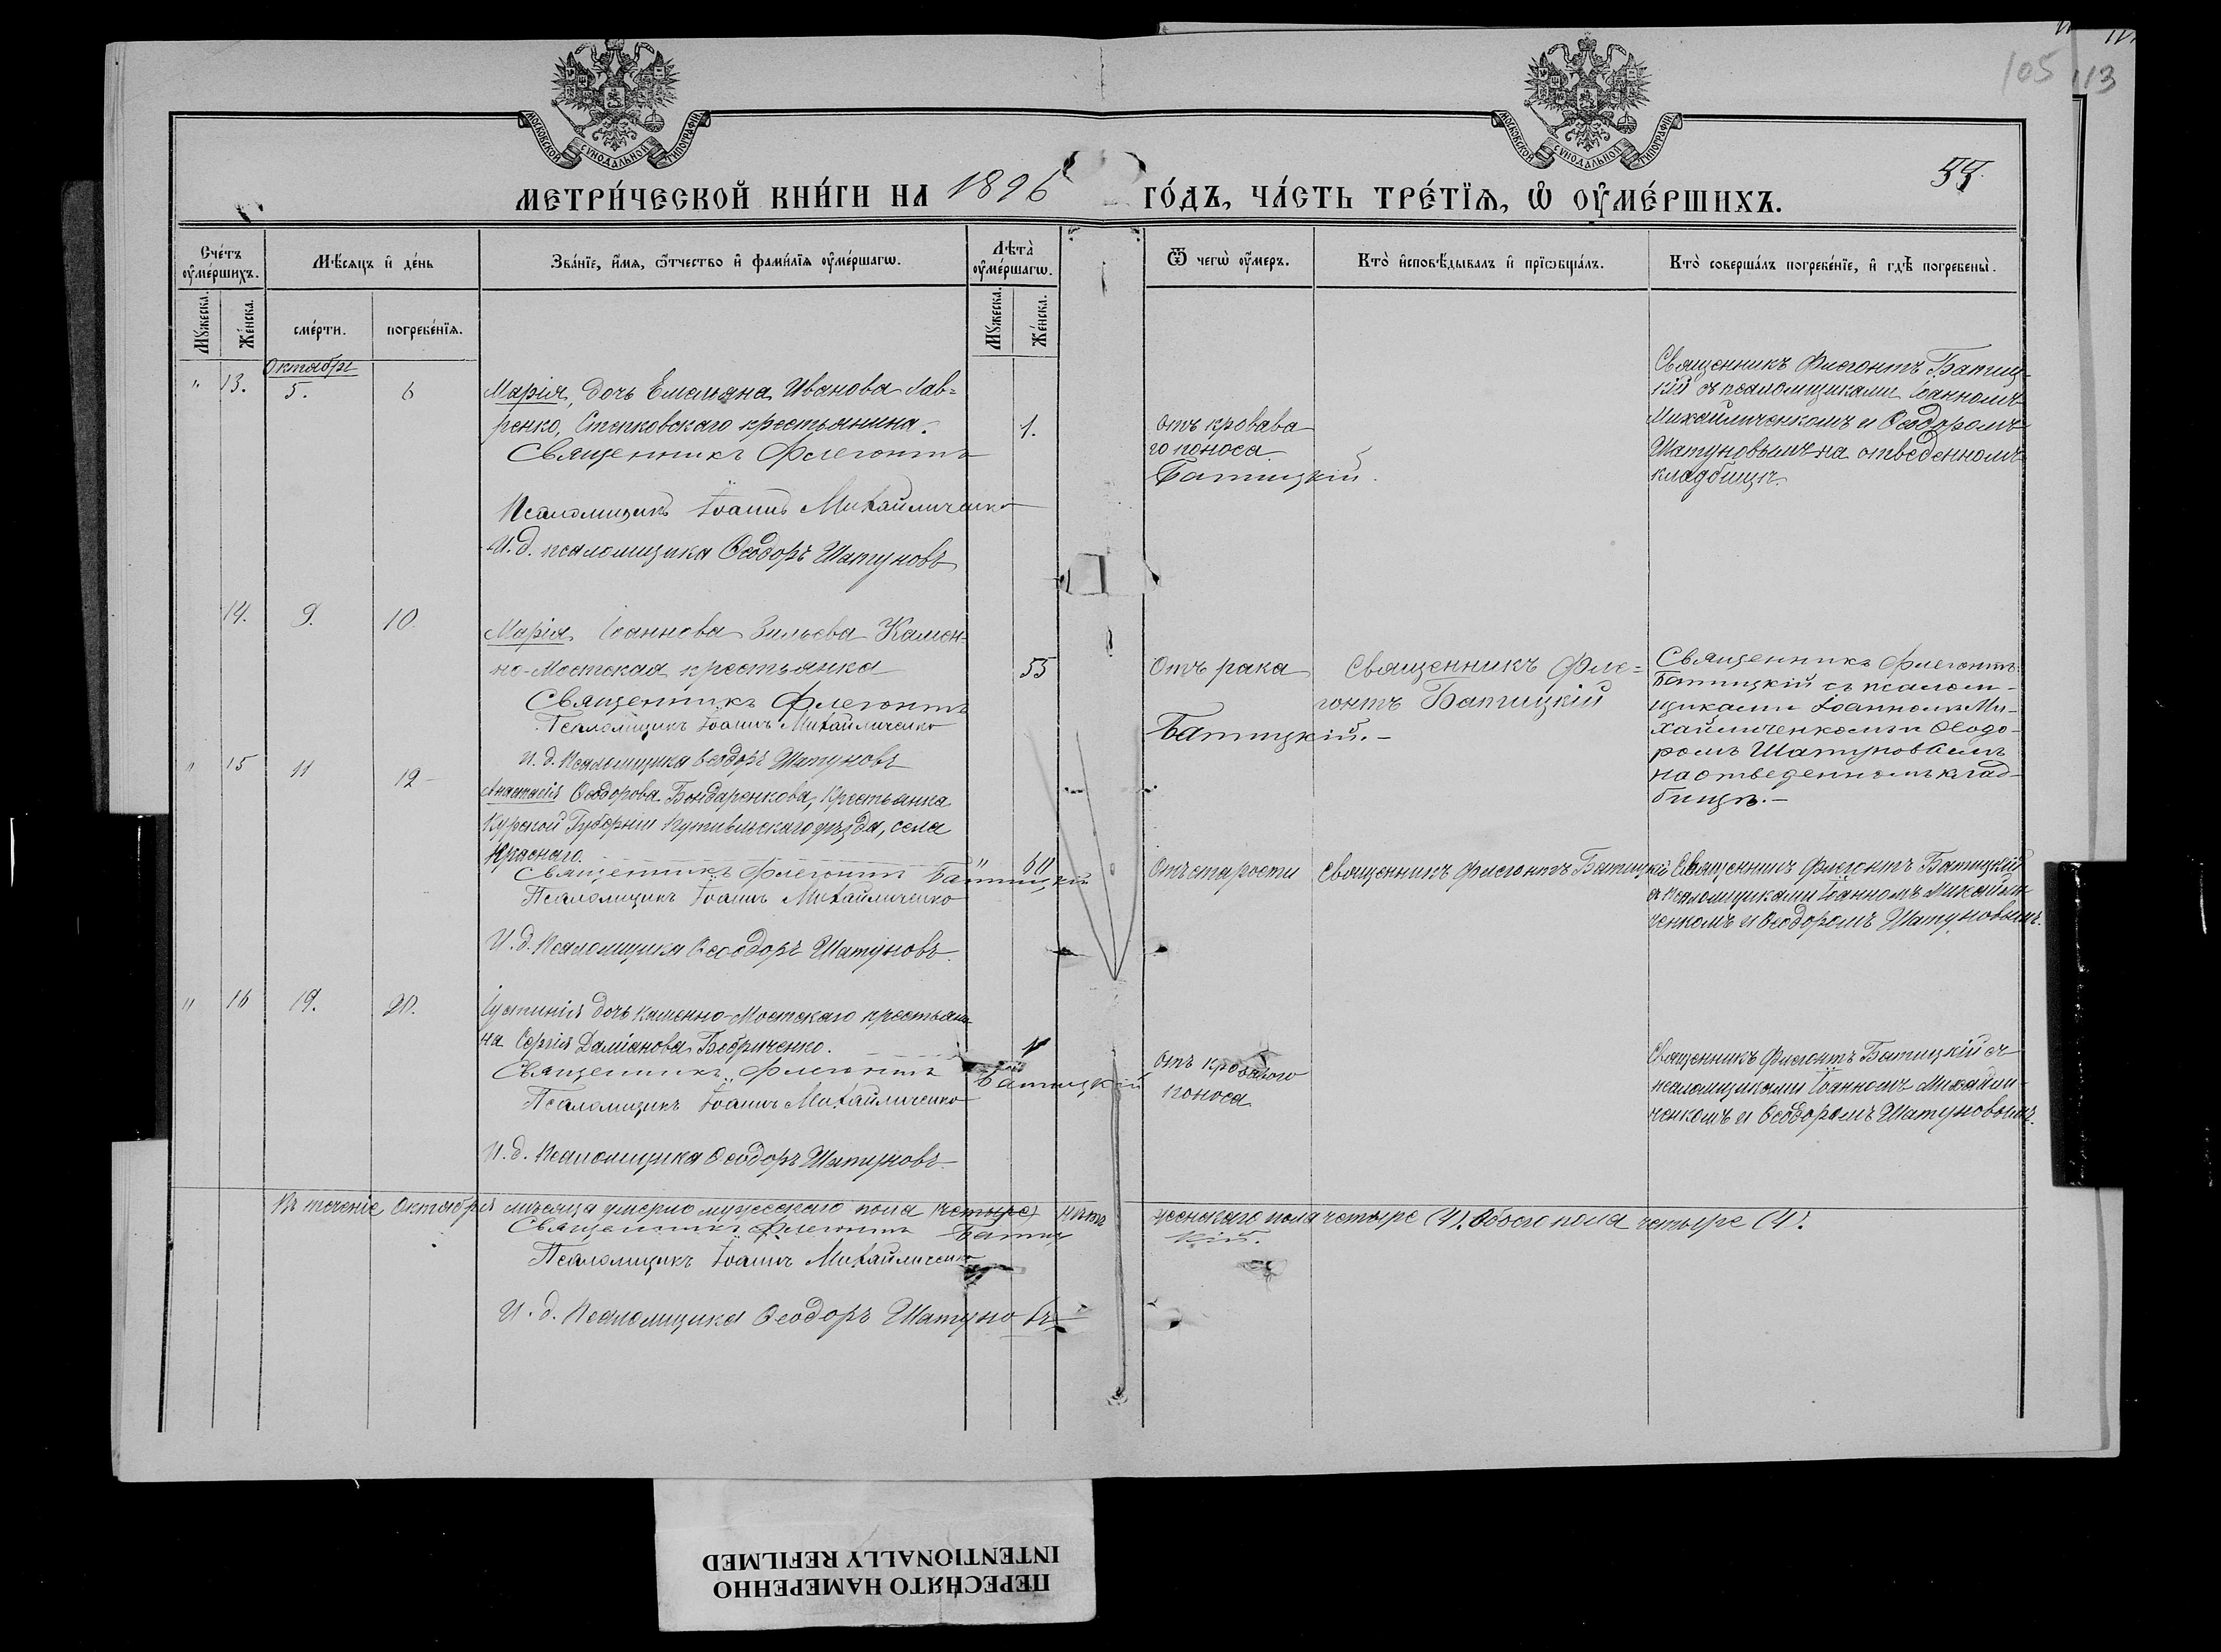 105 113
МОСКОВСКОЙ СѴНОДАЛЬНОЙ ТИПОГРАФІИ
МОСКОВСКОЙ СѴНОДАЛЬНОЙ ТИПОГРАФІИ
55
МЕТРИ́ЧЕСКОЙ КНИ́ГИ НА 1896 ГО́ДЪ, ЧА́СТЬ ТРЕ́ТЇѦ, Ѡ҆ ОУ҆МЕ́РШИХЪ.
Сче́тъ оу҆ме́ршихъ.
Мѣ́сяцъ и҆ де́нь
Зва́нїе, и҆́мѧ, ѻ҆́тчество и҆ фами́лїѧ оу҆ме́ршагѡ.
Лѣта̀ оу҆ме́ршагѡ.
Ѿ чегѡ̀ оу҆́меръ.
Кто̀ и҆сповѣ́дывалъ и҆ прїѡбща́лъ.
Кто̀ соверша́лъ погребе́нїе, и҆ гдѣ̀ погребены̀.
Мꙋ́жеска. Же́нска. сме́рти. погребе́нїѧ. Мꙋ́жеска. Же́нска.
Октябрь
" 13. 5. 6
Марія, дочь Емельяна Иванова Лав=
ренко, Степковскаго крестьянина.
1.
Священникъ Флегонтъ Батицкій.
Псаломщикъ Іоаннъ Михайличенко
И. д. псаломщика Ѳеодоръ Шатуновъ
отъ кровава
го поноса
Священникъ Флегонтъ Батиц-
кій съ псаломщиками Іоанномъ
Михайличенкомъ и Ѳеодоромъ
Шатуновымъ на отведенномъ
кладбищѣ.
14. 9. 10.
Марія Іоаннова Зильева Камен-
но-Мостская крестьянка
55
Священникъ Флегонтъ Батицкій.-
Псаломщикъ Іоаннъ Михайличенко
И. д. Псаломщика Ѳеодоръ Шатуновъ
Отъ рака
Священникъ Фле=
гонтъ Батицкій
Священникъ Флегонтъ
Батицкій съ псалом-
щиками Іоанномъ Ми-
хайличенкомъ и Ѳеодо-
ромъ Шатуновымъ
на отведенномъ клад-
бищѣ.-
" 15 11 12-
Анастасія Ѳеодорова Бондаренкова, крестьянка
Курской Губерніи Путивльскаго уѣзда, села
Краснаго.
" 60
Священникъ Флегонтъ Батицкій
Псаломщикъ Іоаннъ Михайличенко
И. д. Псаломщика Ѳеодоръ Шатуновъ.
Отъ старости
Священникъ Флегонтъ Батицкій
Священникъ Флегонтъ Батицкій
съ Псаломщиками Іоанномъ Михайли
ченкомъ и Ѳеодоромъ Шатуновымъ.
" 16 19. 20.
Іустинія дочь Каменно-Мостскаго крестьяни
на Сергія Даміанова Бобриченко.
1
Священникъ Флегонтъ Батицкій
Псаломщикъ Іоаннъ Михайличенко
И. д. Псаломщика Ѳеодоръ Шатуновъ.
отъ кроваваго
поноса
Священникъ Флегонтъ Батицкій съ
псаломщиками Іоанномъ Михайли-
ченкомъ и Ѳеодоромъ Шатуновымъ.
Въ теченіе Октября мѣсяца умерло мужескаго пола четыре нѣтъ женскаго пола четыре (4). Обоего пола четыре (4).
Священникъ Флегонтъ Батиц
кій.
Псаломщикъ Іоаннъ Михайличенко
И. д. Псаломщика Ѳеодоръ Шатуновъ
ПЕРЕСНЯТО НАМЕРЕННО
INTENTIONALLY REFILMED